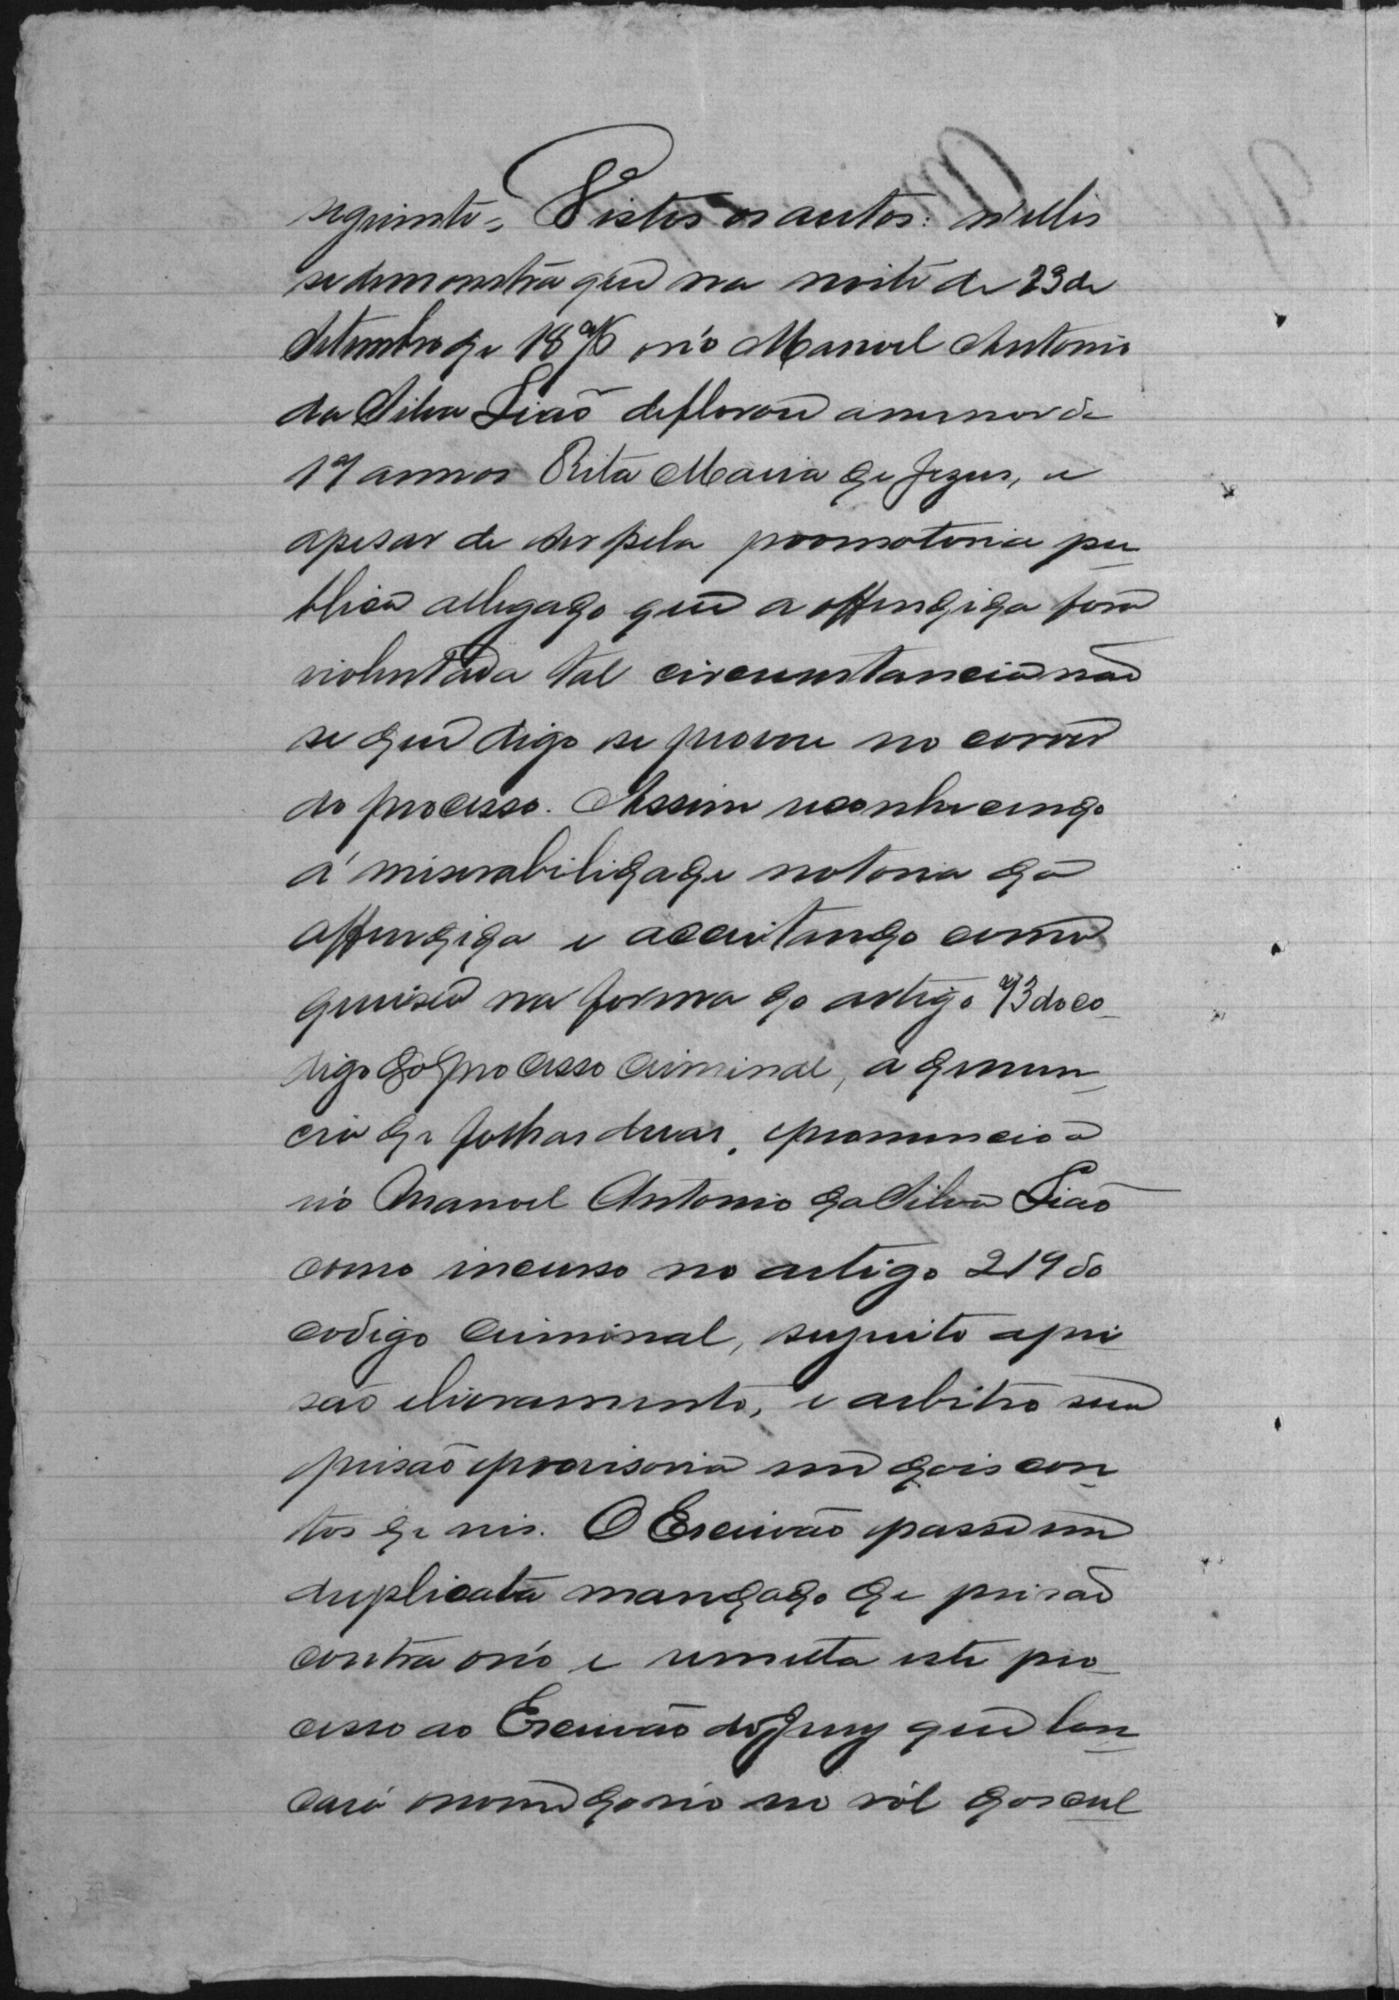 seguinte = Vistos os autos: n'elles
se demonstra que na noite de 23 de
Setembro de 1876 o réo Manoel Antonio
da Silva Lião deflorou a menor de
17 annos Rita Maria de Jezus, e
apesar de ser pela promotoria pu
blica allegado que a offendida fora
violentada tal circumstancia não
se que digo se provou no correr
do processo. Assim reconhecendo
á miserabilidade notoria da
offendida e acceitando como
queixa na forma do artigo 73 do co-
digo do processo criminal, a denun
cia de folhas duas, pronuncio o
réo Manoel Antonio da Silva Lião
como incurso no artigo 219 do
codigo criminal, sugeito a pri
são e livramento, e arbitro sua
prisão provisoria em dois con
tos de reis. O Escrivão passe em
duplicata mandado de prisão
contra o réo e remetta este pro-
cesso ao Escrivão do Jury que lan
cará o nome do réo no ról dos cul